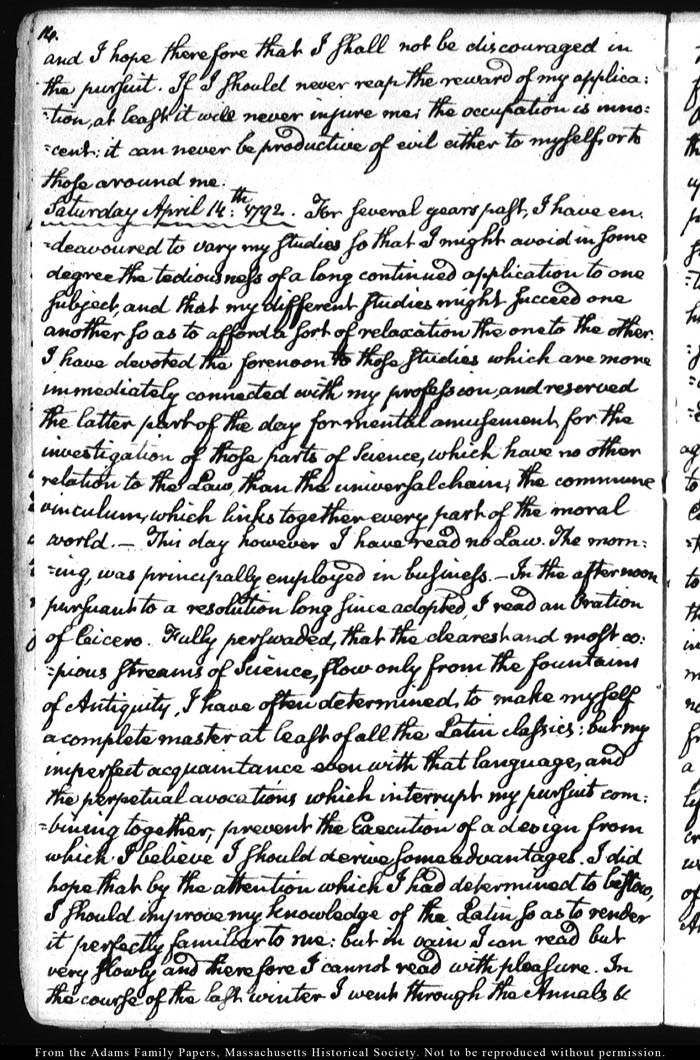 14.
and I hope therefore that I shall not be discouraged in
the pursuit. If I should never reap the reward of my applica:
:tion, at least it will never injure me; the occupation is inno:
:cent: it can never be productive of evil either to myself, or to
those around me.
Saturday April 14:th 1792. For several years past, I have en.
=deavoured to vary my studies so that I might avoid in some
degree the tediousness of a long continued application to one
subject, and that my different studies might succeed one
another so as to afford a sort of relaxation the one to the other.
I have devoted the forenoon to those studies which are more
immediately connected with my profession, and reserved
the latter part of the day for mental amusement, for the
investigation of those parts of Science, which have no other
relation to the Law, than the universal chain, the commune
vinculum, which links together every part of the moral
world. — This day however I have read no Law. The morn:
:ing, was principally employed in business. — In the afternoon
pursuant to a resolution long since adopted, I read an Oration
of Cicero. Fully perswaded, that the clearest and most co:
:pious streams of Science, flow only from the fountains
of Antiquity, I have often determined, to make myself
a complete master at least of all the Latin classics: but my
imperfect acquaintance even with that language, and
the perpetual avocations which interrupt my pursuit com:
=bining together, prevent the Execution of a design from
which I believe I should derive some advantages. I did
hope that by the attention which I had determined to bestow,
I should improve my knowledge of the Latin so as to render
it perfectly familiar to me: but in vain I can read but
very slowly and therefore I cannot read with pleasure. In
the course of the last winter I went through the Annals &
From the Adams Family Papers, Massachusetts Historical Society. Not to be reproduced without permission.